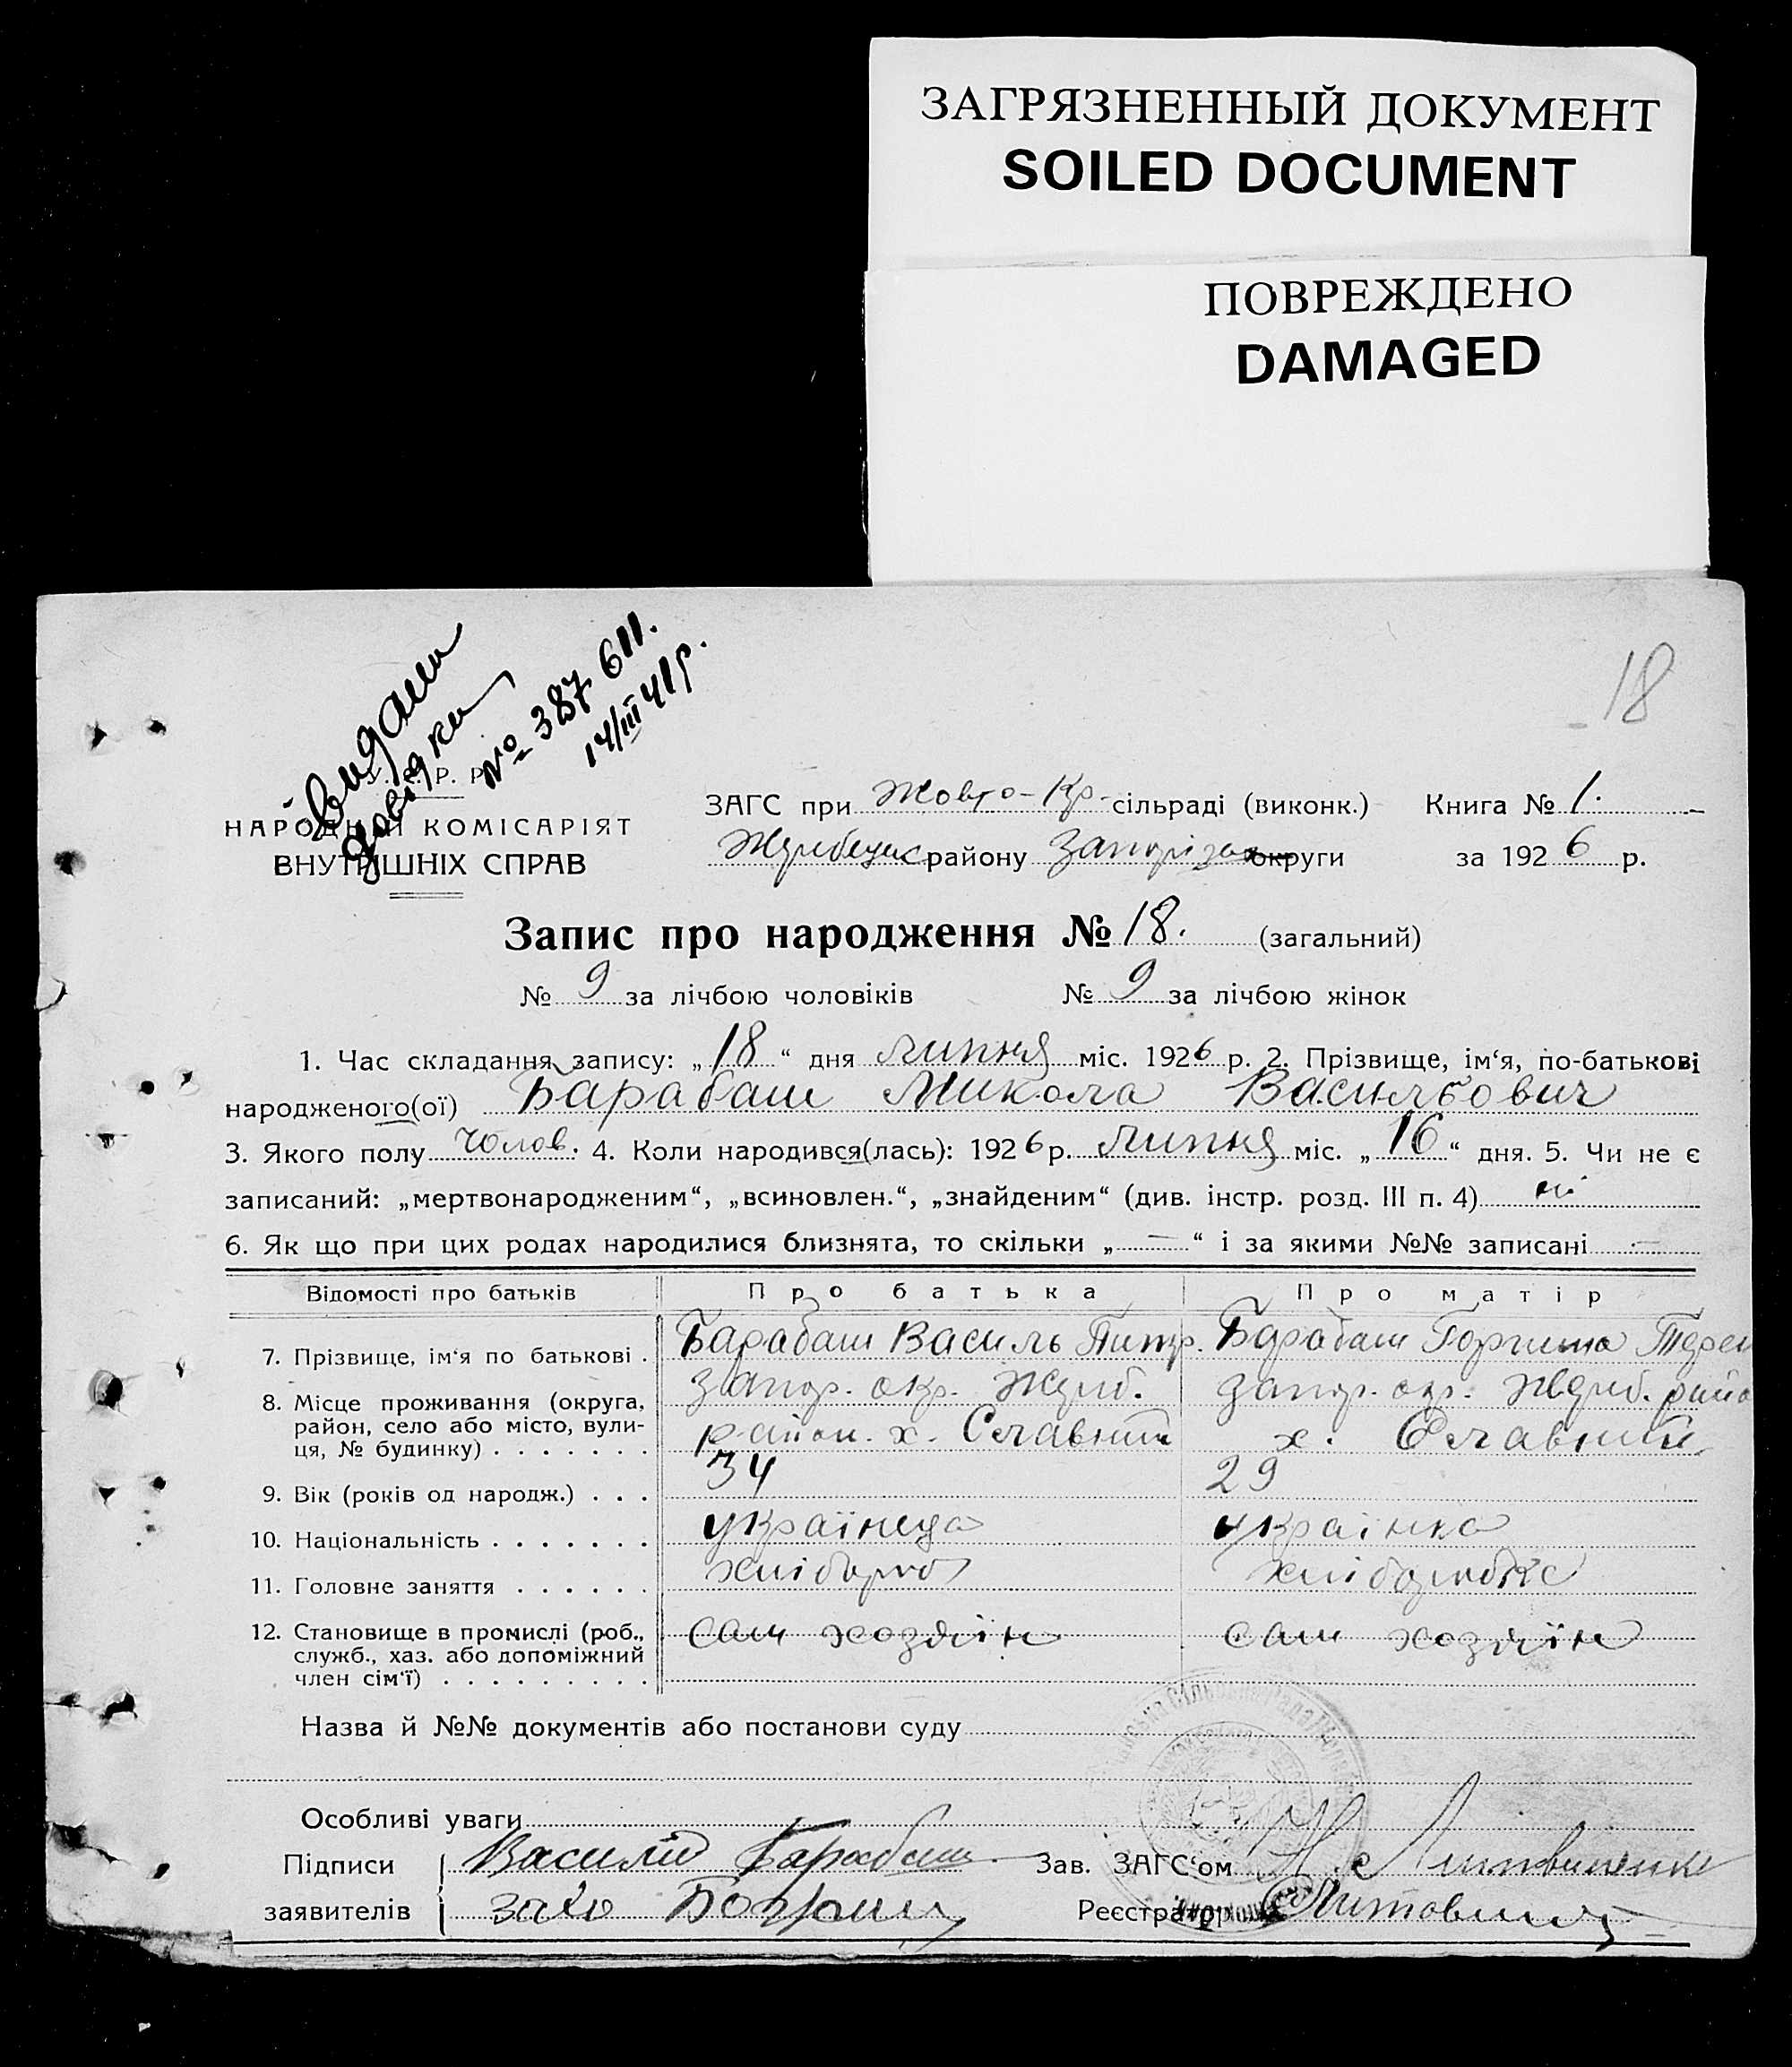 ЗАГРЯЗНЕННЫЙ ДОКУМЕНТ
SOILED DOCUMENT
ПОВРЕЖДЕНО
DAMAGED
18
Видали
довідки
№ 387611.
14/III 41р.
У. С. Р. Р.
НАРОДНИЙ КОМІСАРІЯТ
ВНУТРІШНІХ СПРАВ
ЗАГС при Жовто-Кр. сільраді (виконк.) Книга № 1.
Жеребецьк району Запорізьк округи за 1926 р.
Запис про народження № 18. (загальний)
№ 9 за лічбою чоловіків № 9 за лічбою жінок
1. Час складання запису: „18“ дня липня міс. 1926 р. 2. Прізвище, ім‘я, по-батькові
народженого(ої) Барабаш Микола Васильович
3. Якого полу чолов. 4. Коли народився(лась): 1926 р. липня міс. „16“ дня. 5. Чи не є
записаний: „мертвонародженим“, „всиновлен.“, „знайденим“ (див. інстр. розд. III п. 4) ні
6. Як що при цих родах народилися близнята, то скільки „—“ і за якими №№ записані —
Відомості про батьків Про батька Про матір
7. Прізвище, ім‘я по батькові . Барабаш Василь Питр. Барабаш Горпина Терен
8. Місце проживання (округа, Запор. окр. Жереб. Запор. окр. Жереб. райо
район, село або місто, вули- район. х. Славний х. Славний
ця, № будинку) . . . . . . .
9. Вік (років од народж.) . . . 34 29
10. Національність . . . . . . . українець українка
11. Головне заняття . . . . . . хлібороб хліборобка
12. Становище в промислі (роб., сам хозяїн сам хозяїн
служб., хаз. або допоміжний
член сім‘ї) . . . . . . . . .
Назва й №№ документів або постанови суду
Особливі уваги
Підписи Василий Барабаш Зав. ЗАГС‘ом Литвиненко
заявителів Реєстратор